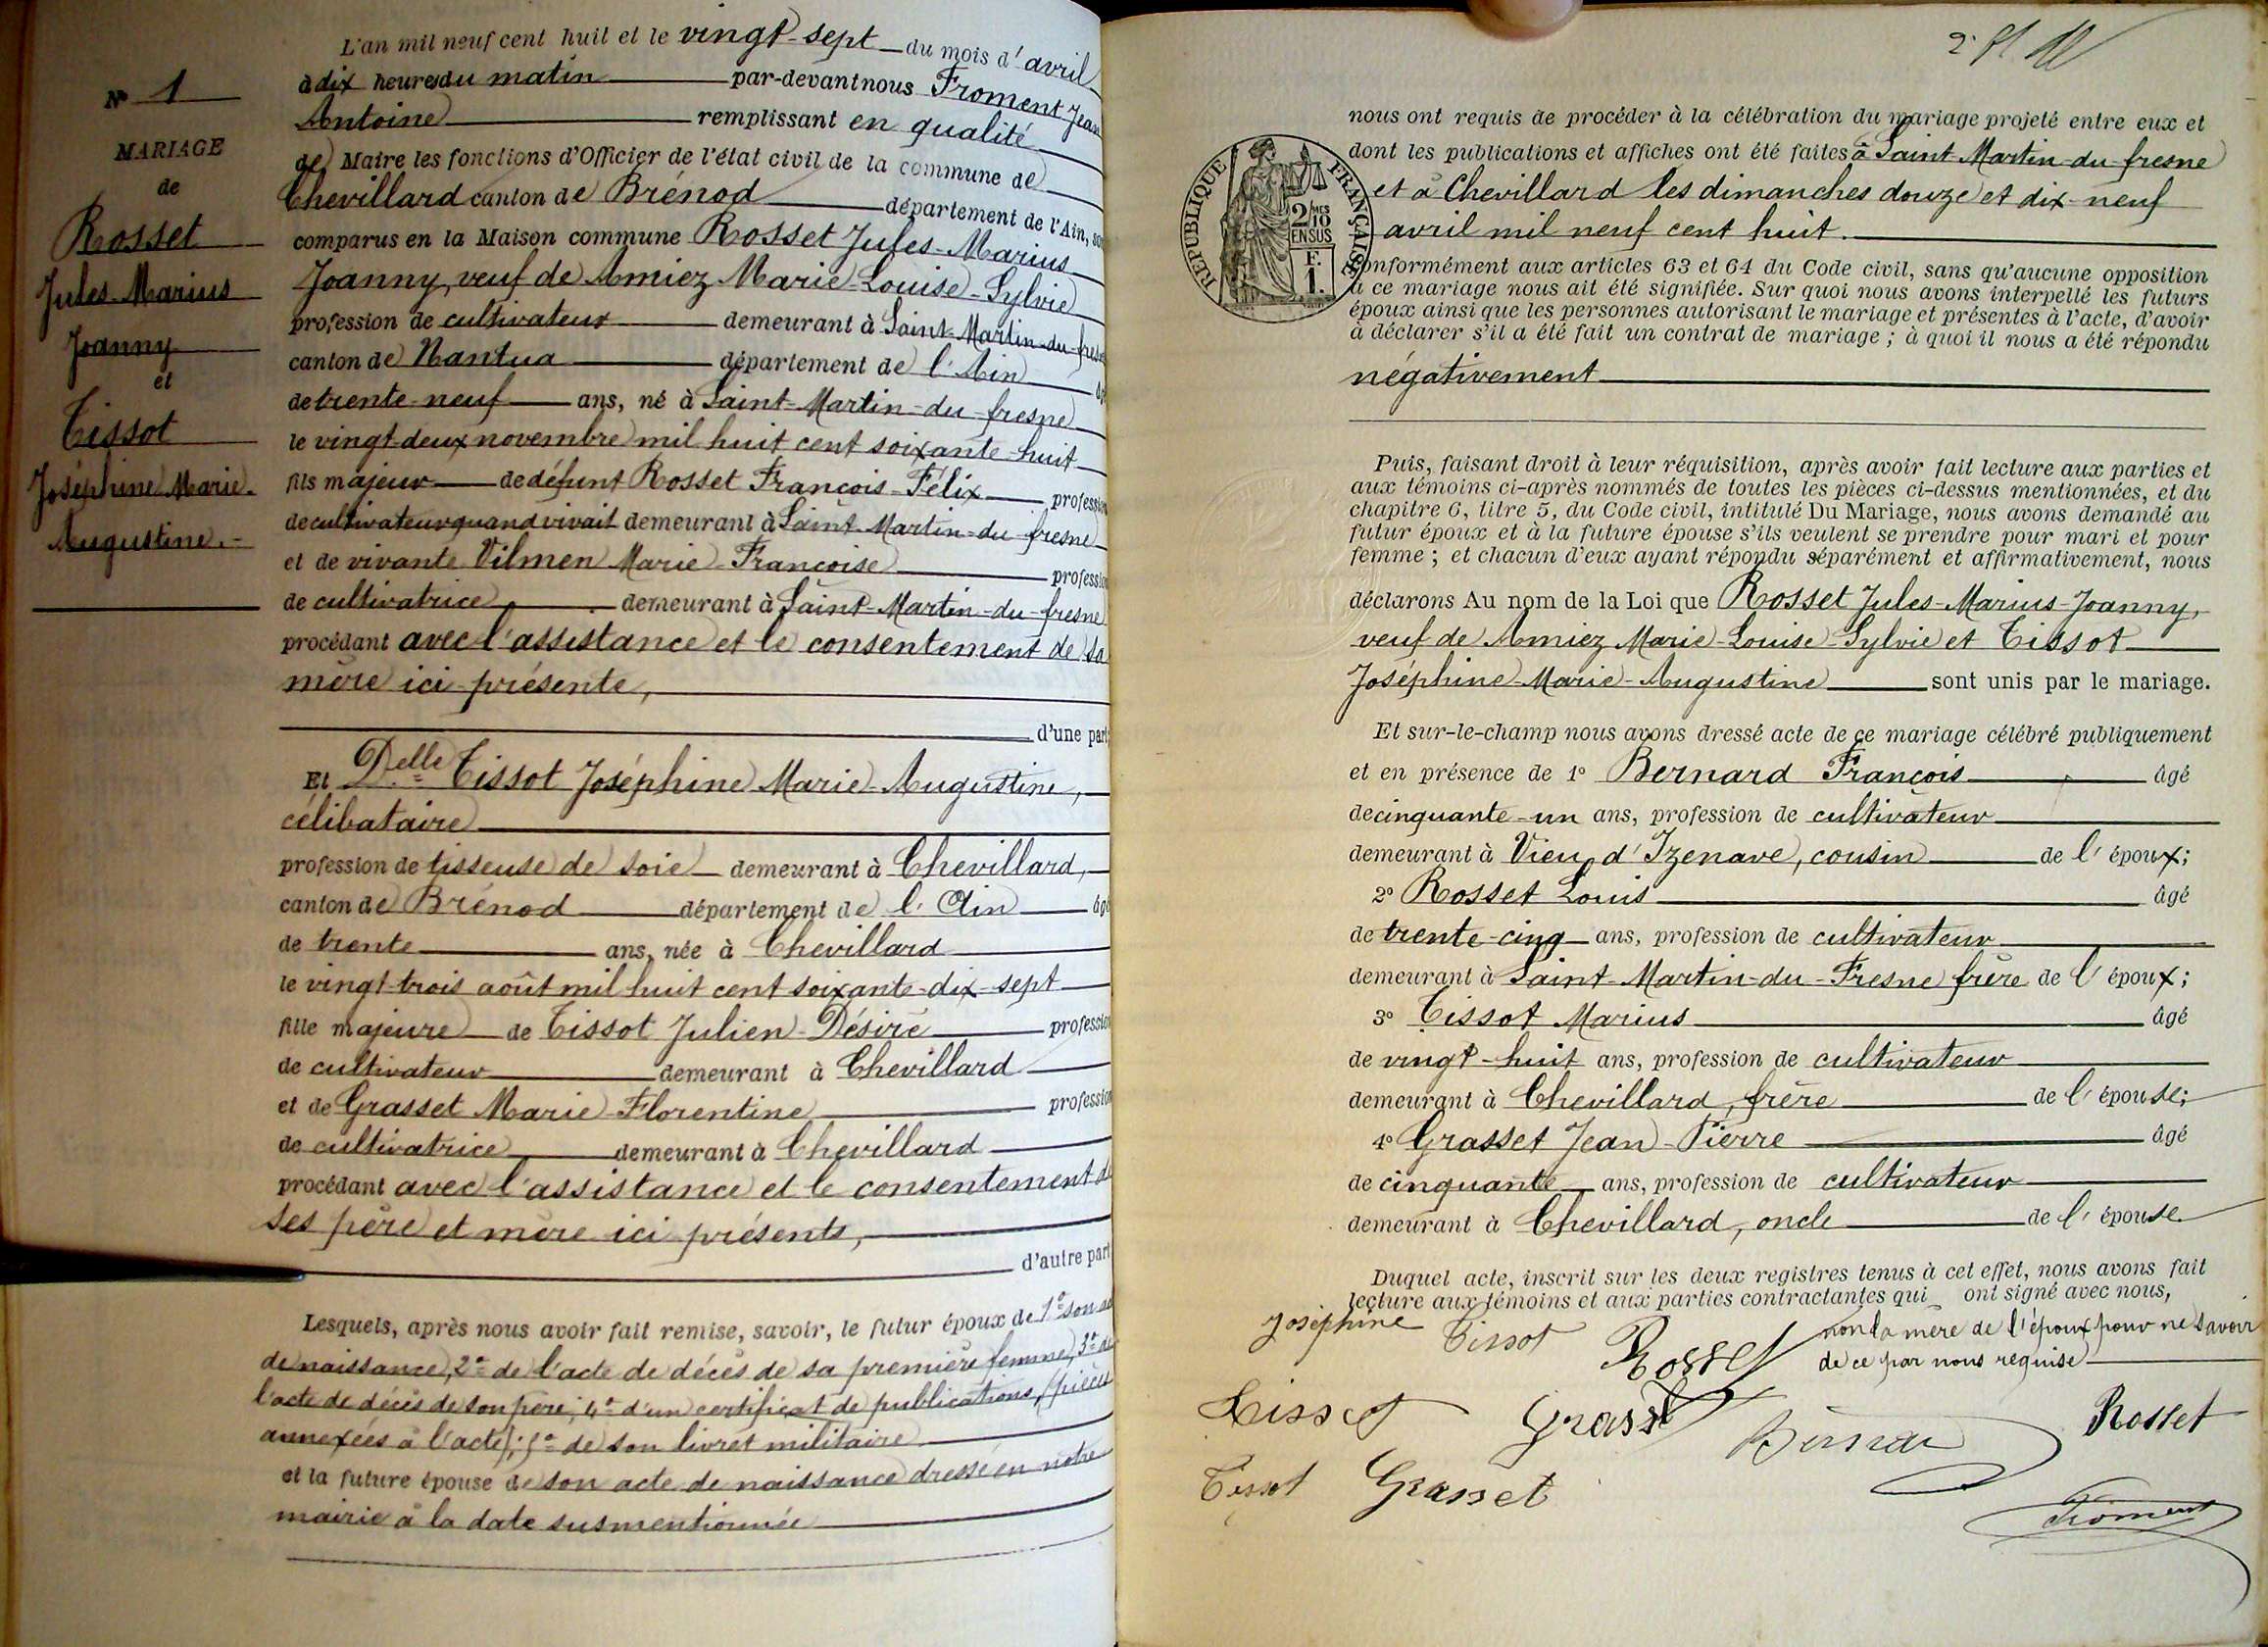 L'an mil neuf cent huit et le vingt-sept du mois d'avril
à dix heures du matin par-devant nous Froment Jean
Antoine remplissant en qualité
de Maire les fonctions d'Officier de l'état civil de la commune de
Chevillard canton de Brénod département de l'Ain, son
comparus en la Maison commune Rosset Jules-Marius
Joanny, veuf de Amiez Marie-Louise-Sylvie
profession de cultivateur demeurant à Saint-Martin-du-fresne
canton de Nantua département de l'Ain âgé
de trente-neuf ans, né à Saint-Martin-du-fresne
le vingt-deux novembre mil huit cent soixante-huit
fils majeur de défunt Rosset François-Félix profession
de cultivateur quand vivait demeurant à Saint-Martin-du-fresne
et de vivante Vilmen Marie-Françoise profession
de cultivatrice demeurant à Saint-Martin-du-fresne
procédant avec l'assistance et le consentement de sa
mère ici présente,
d'une part
Et Delle Tissot Joséphine Marie-Augustine,
célibataire
profession de tisseuse de soie demeurant à Chevillard,
canton de Brénod département de l'Ain âgé
de trente ans, née à Chevillard
le vingt-trois août mil huit cent soixante-dix-sept
fille majeure de Tissot Julien-Désiré profession
de cultivateur demeurant à Chevillard
et de Grasset Marie-Florentine profession
de cultivatrice demeurant à Chevillard
procédant avec l'assistance et le consentement de
ses père et mère ici présents,
d'autre part
Lesquels, après nous avoir fait remise, savoir, le futur époux de 1° son ac
de naissance, 2° de l'acte de décès de sa première femme, 3° de
l'acte de décès de son père, 4° d'un certificat de publications, (pièces
annexées à l'acte); 5° de son livret militaire
et la future épouse de son acte de naissance dressé en notre
mairie à la date susmentionnée
N° 1
MARIAGE
de
Rosset
Jules-Marius
Joanny
et
Tissot
Joséphine Marie-
Augustine.-
nous ont requis de procéder à la célébration du mariage projeté entre eux et
dont les publications et affiches ont été faites à Saint-Martin-du-fresne
et à Chevillard les dimanches douze et dix-neuf
avril mil neuf cent huit.
conformément aux articles 63 et 64 du Code civil, sans qu'aucune opposition
à ce mariage nous ait été signifiée. Sur quoi nous avons interpellé les futurs
époux ainsi que les personnes autorisant le mariage et présentes à l'acte, d'avoir
à déclarer s'il a été fait un contrat de mariage ; à quoi il nous a été répondu
négativement
RÉPUBLIQUE FRANÇAISE
2/10 MES
EN SUS
F.
1.
Puis, faisant droit à leur réquisition, après avoir fait lecture aux parties et
aux témoins ci-après nommés de toutes les pièces ci-dessus mentionnées, et du
chapitre 6, titre 5, du Code civil, intitulé Du Mariage, nous avons demandé au
futur époux et à la future épouse s'ils veulent se prendre pour mari et pour
femme ; et chacun d'eux ayant répondu séparément et affirmativement, nous
déclarons Au nom de la Loi que Rosset Jules-Marius-Joanny,
veuf de Amiez Marie-Louise-Sylvie et Tissot
Joséphine-Marie-Augustine sont unis par le mariage.
Et sur-le-champ nous avons dressé acte de ce mariage célébré publiquement
et en présence de 1° Bernard François âgé
de cinquante-un ans, profession de cultivateur
demeurant à Vieu d'Izenave, cousin de l'époux;
2° Rosset Louis âgé
de trente-cinq ans, profession de cultivateur
demeurant à Saint-Martin-du-Fresne frère de l'époux;
3° Tissot Marius âgé
de vingt-huit ans, profession de cultivateur
demeurant à Chevillard, frère de l'épouse;
4° Grasset Jean-Pierre âgé
de cinquante ans, profession de cultivateur
demeurant à Chevillard, oncle de l'épouse
Duquel acte, inscrit sur les deux registres tenus à cet effet, nous avons fait
lecture aux témoins et aux parties contractantes qui ont signé avec nous,
non la mère de l'époux pour ne savoir
de ce par nous requise
Joséphine Tissot Rosset
Tissot Grasset Rosset
Tissot Grasset Froment